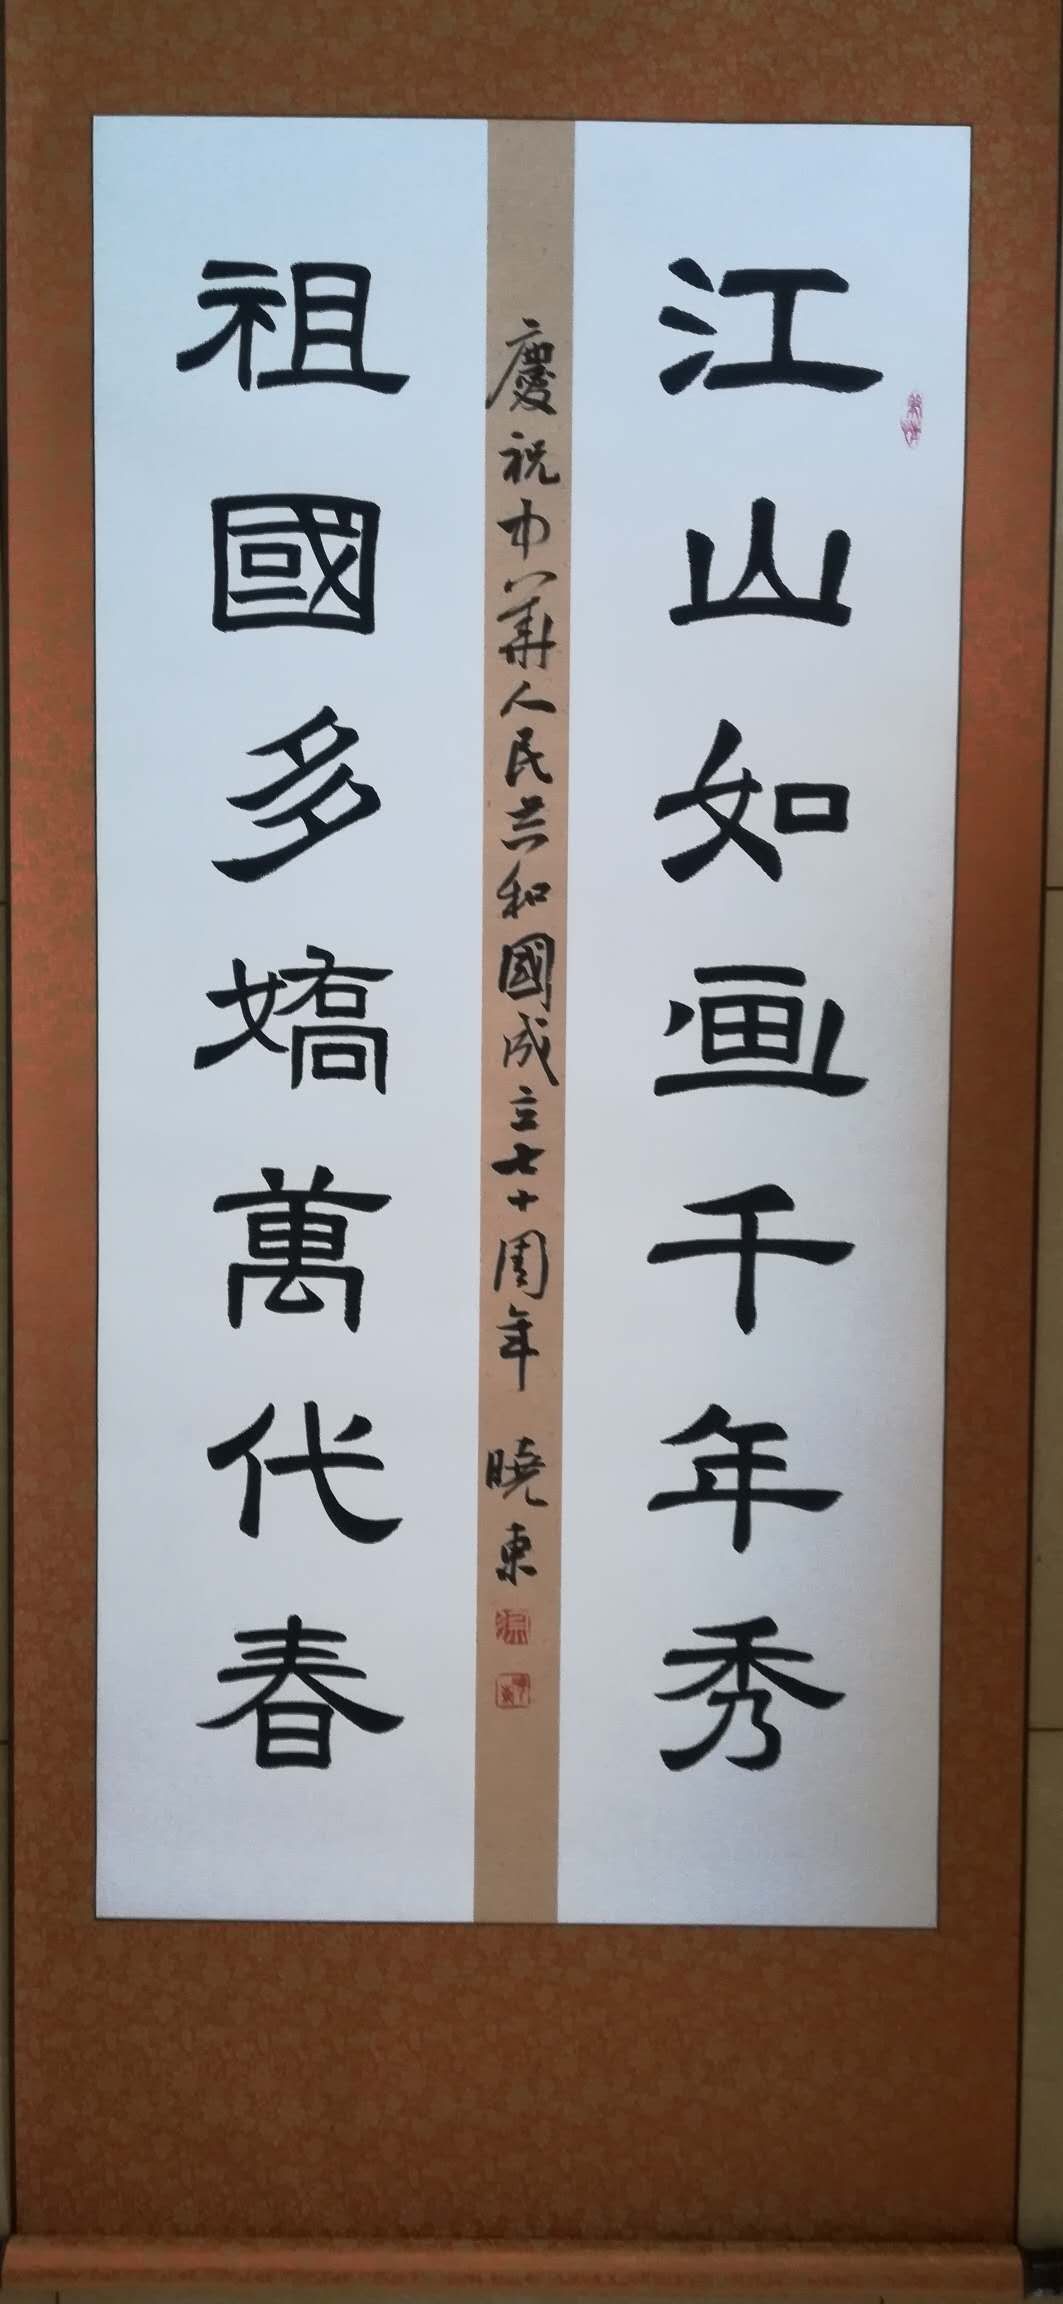 江山如画千年秀
慶祝中華人民共和國成立七十周年 曉東
祖國多嬌萬代春